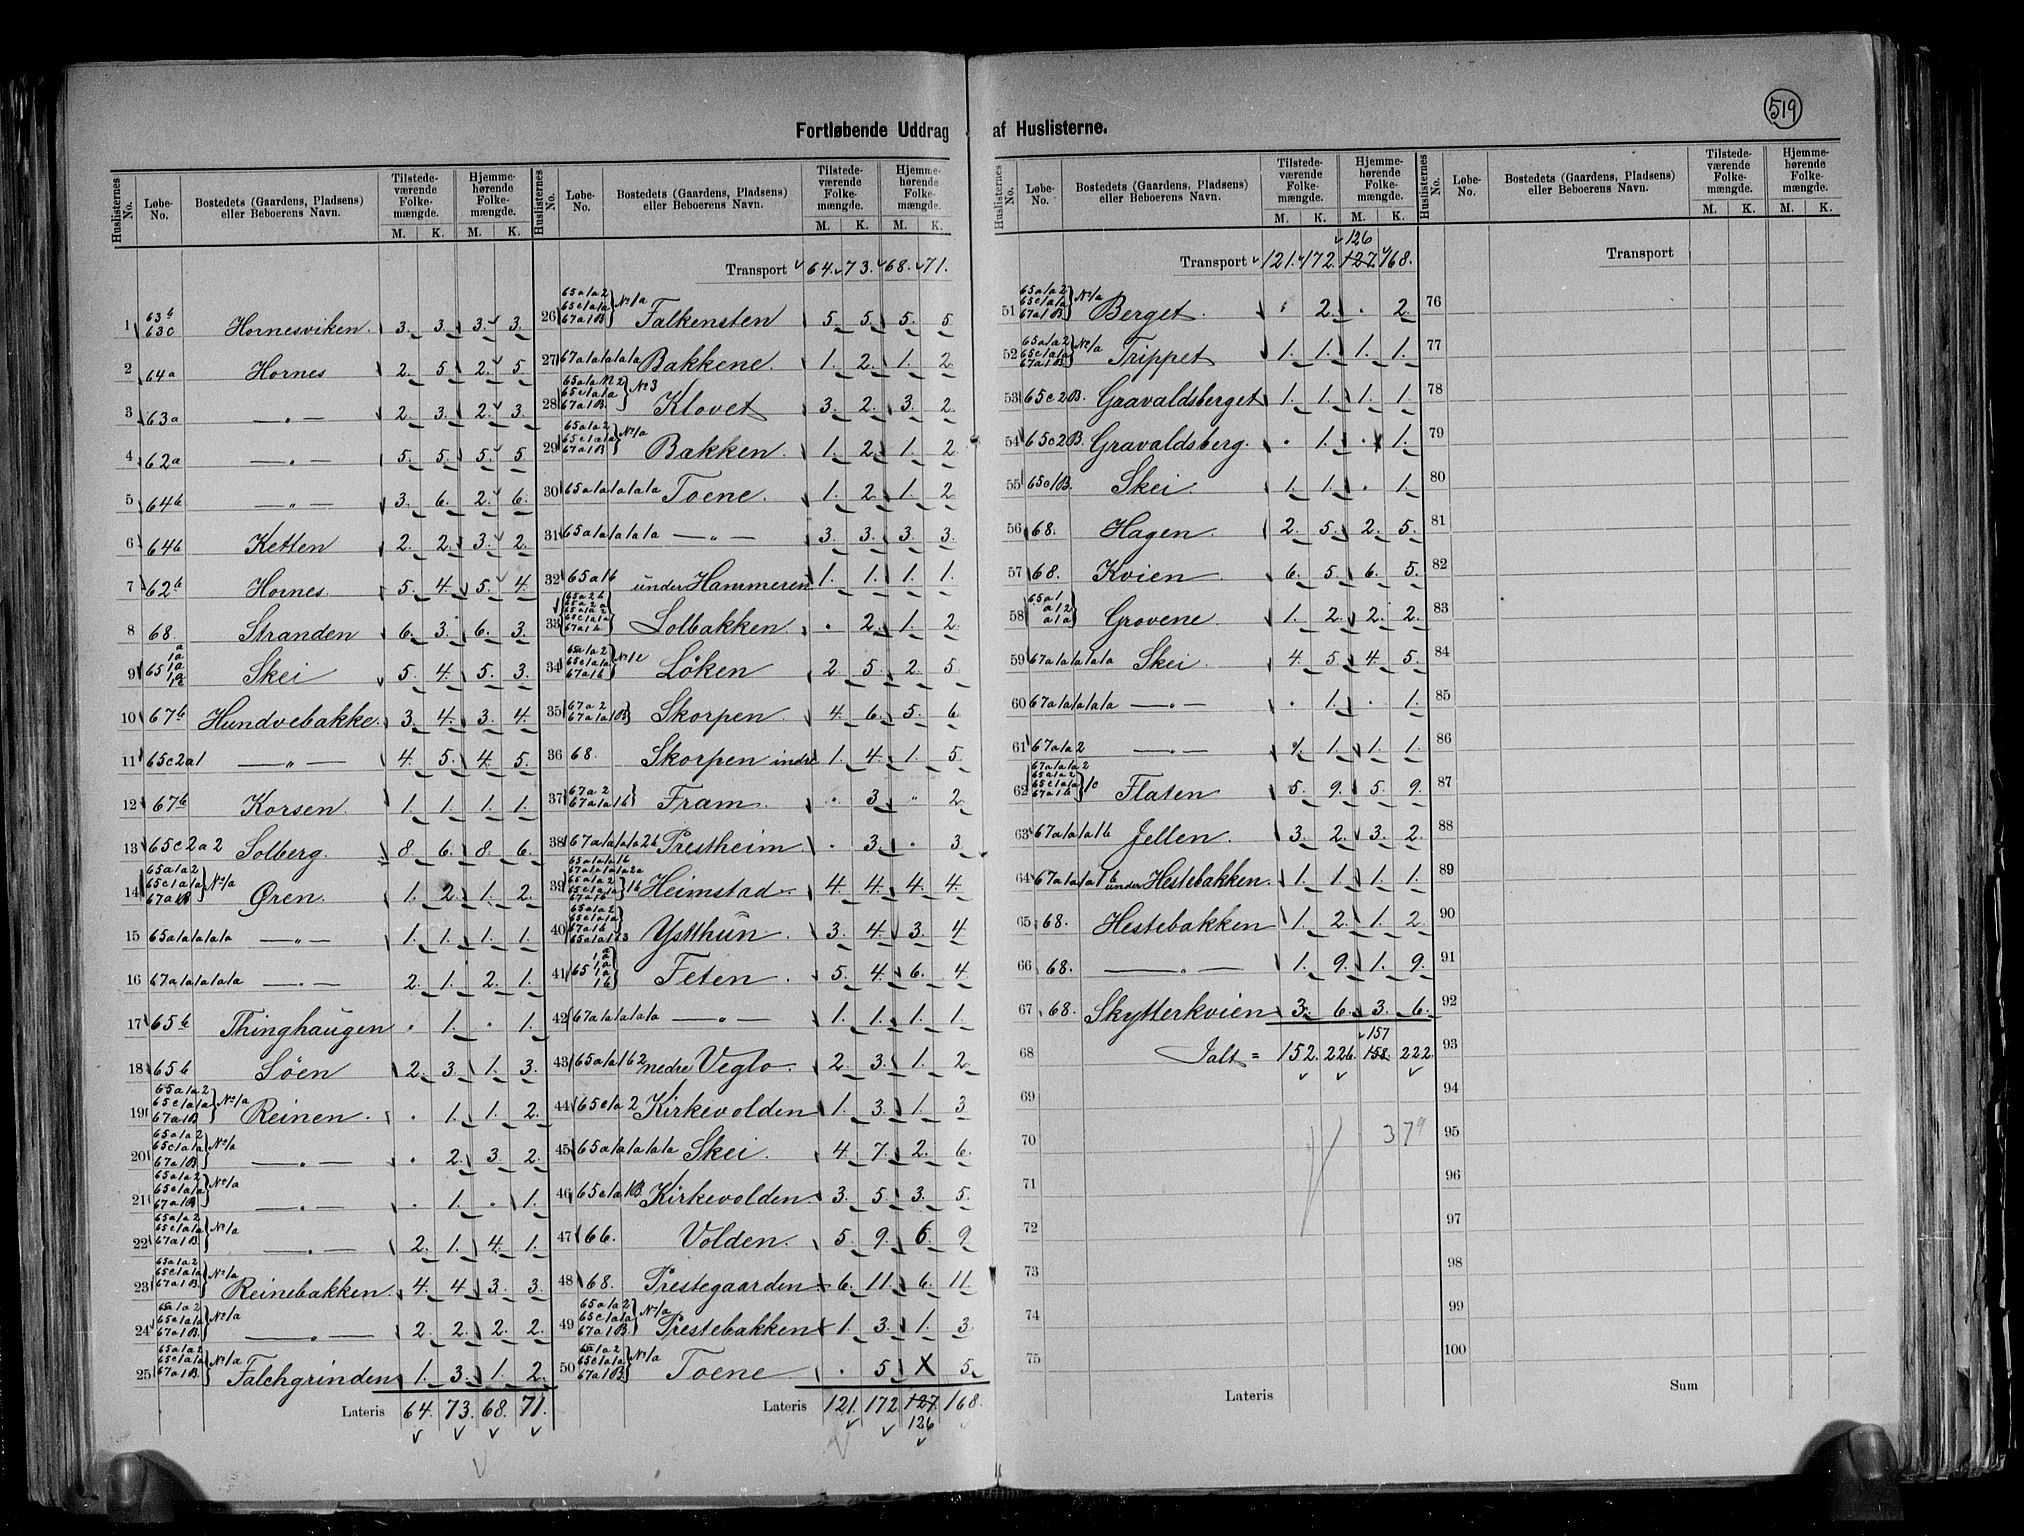 519
Fortløbende Uddrag af Huslisterne.
Huslisternes No. Løbe-No. Bostedets (Gaardens, Pladsens) eller Beboerens Navn. Tilstedeværende Folkemængde. Hjemmehørende Folkemængde.
M. K. M. K.
1 63b 63c Hornesviken. 3. 3. 3. 3.
2 64a Hornes 2. 5. 2. 5.
3 63a — „ — 2. 3. 2. 3.
4 62a — „ — 5. 5. 5. 5.
5 64b — „ — 3. 6. 2. 6.
6 64b Ketten 2. 2. 3. 2.
7 62b Hornes. 5. 4. 5. 4.
8 68. Stranden 6. 3. 6. 3.
9 65 a 1a 1a 1a 1c Skei 5. 4. 5. 3.
10 67b Hundvebakke. 3. 4. 3. 4.
11 65c2a1 — „ — 4. 5. 4. 5.
12 67b Korsen. 1. 1. 1. 1.
13 65c2a2 Solberg. 8. 6. 8. 6.
14 65a1a2 65c1a1a 67a1B } No1a Øren. 1. 2. 1. 2.
15 65a1a1a1a — „ — 1. 1. 1. 1.
16 67a1a1a1a — „ — 2. 1. 2. 1.
17 65b Thinghaugen • 1. • 1.
18 65b Söen 2. 3. 1. 3.
19 65a1a2 65c1a1a 67a1B } No1a Reinen. • 1. 1. 2.
20 65a1a2 65c1a1a 67a1B } No1a — „ — • 2. 3. 2.
21 65a1a2 65c1a1a 67a1B } No1a — „ — • 1. • 1.
22 65a1a2 65c1a1a 67a1B } No1a — „ — 2. 1. 4. 1.
23 65a1a2 65c1a1a 67a1B. } No1a Reinebakken. 4. 4 3. 3.
24 65a1a2 65c1a1a 67a1B. } No1a — „ — 2. 2. 2. 2.
25 65a1a2 65c1a1a 67a1B. } No1a Falchgrinden 1. 3. 1. 2.
Lateris 64. 73. 68. 71.
Huslisternes No. Løbe-No. Bostedets (Gaardens, Pladsens) eller Beboerens Navn. Tilstedeværende Folkemængde. Hjemmehørende Folkemængde.
M. K. M. K.
Transport 64. 73. 68. 71.
26 65a1a2 65c1a1a 67a1B } No1a Falkensten 5. 5. 5. 5
27 67a1a1a1a1a Bakkene. 1. 2. 1. 2
28 65a1a1a2 65c1a1a 67a1B. } No3 Klovet 3. 2. 3. 2
29 65a1a2 65c1a1a 67a1B } No1a Bakken. 1. 2. 1. 2
30 65a1a1a1a1a Toene. 1. 2. 1. 2
31 65a1a1a1a1a — „ — 3. 3. 3. 3.
32 65a1b under Hammeren 1. 1. 1. 1.
33 65a2b 65a2a 65a1a2 65c1a1a 67a1b } Solbakken. • 2. 1. 2.
34 65a1a2 65c1a1a 67a1b } No1c Löken 2. 5. 2. 5.
35 67a2 67a1a1B } Skorpen. 4. 6. 5. 6.
36 68. Skorpen indre 1. 4. 1. 5.
37 67a2 67a1a1b } Fram. • 3. „ 2.
38 67a1a1a1a2b Prestheim. • 3. • 3.
39 65a1a1a1b 67a1a1a1a2a 65a1a2 65c1a1a 67a1b } 1b Heimstad 4. 4. 4. 4.
40 65a1a2 65c1a1a 67a1b 65a1a1b3 } Ystthun. 3. 4. 3. 4
41 65 1a 1a 1a 1b } Feten. 5. 4. 6. 4.
42 67a1a1a1a1a — „ — 1. 1. 1. 1.
43 65a1a1b2 nedre Veglo. 2. 3. 1. 2
44 65c1a2 Kirkevolden 1. 3. 1. 3
45 65a1a1a1a1a Skei. 4. 7. 2. 6.
46 65c1a1B. Kirkevolden. 3. 5. 3. 5.
47 66. Volden. 5. 9. 6. 9
48 68. Prestegaarden 6. 11. 6. 11.
49 65a1a2 65c1a1a 67a1B } No1a Prestebakken 1. 3. 1. 3.
50 65a1a2 65c1a1a 67a1B } No1a Toene. • 5. X 5.
Lateris 121. 172. 127. 168.
126
Huslisternes No. Løbe-No. Bostedets (Gaardens, Pladsens) eller Beboerens Navn. Tilstedeværende Folkemængde. Hjemmehørende Folkemængde.
M. K. M. K.
126
Transport 121. 172. 127. 168.
51 65a1a2 65c1a1a 67a1B } No1a Berget. • 2. • 2.
52 65a1a2 65c1a1a 67a1B } No1a Trippet 1. 1. 1. 1.
53 65c2B. Gravaldsberget 1. 1. 1. 1.
54 65c2B. Gravaldsberg. • 1. • 1.
55 65c1B. Skei. 1. 1. • 1.
56 68. Hagen. 2. 5. 2. 5.
57 68. Kvien. 6. 5. 6. 5.
58 65a1 a12 a1a } Grovene. 1. 2. 2. 2.
59 67a1a1a1a1a Skei. 4. 5. 4. 5.
60 67a1a1a1a1a — „ — • 1. • 1.
61 67a1a2 — „ — 1. 1. 1. 1.
62 67a1a1a2 65a1a2 65c1a1a 67a1b } 1c Flaten 5. 9. 5. 9.
63 67a1a1a1b Jellen. 3. 2. 3. 2.
64 67a1a1a1b under Hestebakken. 1. 1. 1. 1.
65 68. Hestebakken 1. 2. 1. 2.
66 68. — „ — 1. 9. 1. 9.
67 68. Skytterkvien 3. 6. 3. 6.
157
68 Ialt = 152. 226. 158. 222.
69
70 379
71
72
73
74
75
Lateris
Huslisternes No. Løbe-No. Bostedets (Gaardens, Pladsens) eller Beboerens Navn. Tilstedeværende Folkemængde. Hjemmehørende Folkemængde.
M. K. M. K.
Transport
76
77
78
79
80
81
82
83
84
85
86
87
88
89
90
91
92
93
94
95
96
97
98
99
100
Sum